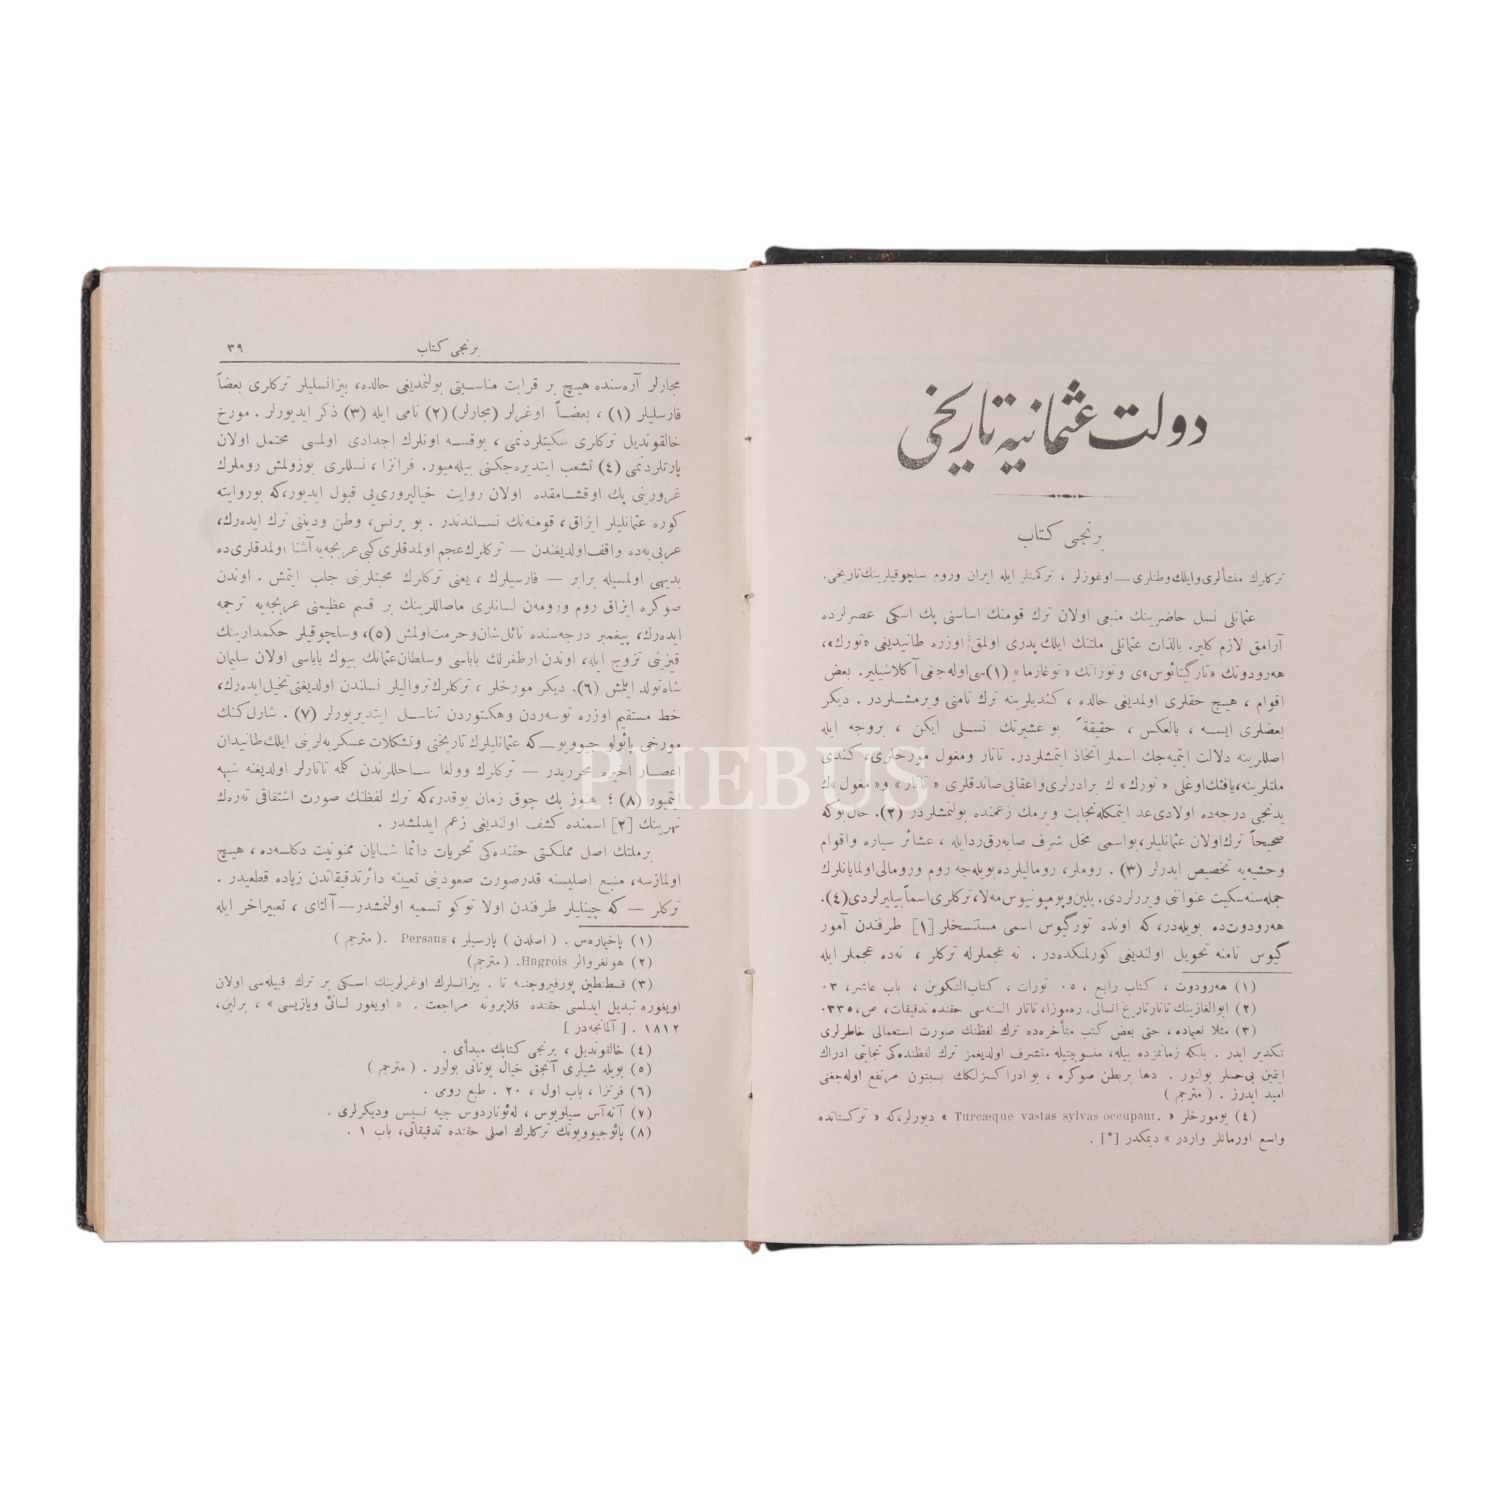 دولت عثمانیه تاریخی
برنجی کتاب
ترکلرك منشألری وایلك وطنلری — اوغوزلر ، ترکمنلر ایله ایران وروم سلجوقیلرینك تاریخی.
عثمانلی نسل حاضرینك منبعی اولان ترك قومنك اساسنی پك اسکی عصرلرده
آرامق لازم کلیر. بالذات عثمانلی ملتنك ایلك پدری اولمق اوزره طانیدیغی «تورك»،
هه‌رودوتك «تارگیتائوس»ی و توراتك «توغارما» (١)سی اوله‌جغی آکلاشیلیر. بعض
اقوام ، هیچ حقلری اولمدیغی حالده ، کندیلرینه ترك نامنی ویرمشلردر . دیکر
بعضلری ایسه ، بالعکس ، حقیقةً بو عشیرتك نسلی ایکن ، بروجه ایله
اصللرینه دلالت ایتمیه‌جك اسملر اتخاذ ایتمشلردر. تاتار ومغول مورخلری، کندی
ملتلرینه، یافثك اوغلی « تورك» ك برادرلری واعقابی صاندقلری « تاتار » و« مغول »ك
یدنجی درجه‌ده اولادی عد ایتمکله نجابت ویرمك زعمنده بولنمشلردر (٢). حال بوکه
صحیحاً ترك اولان عثمانلیلر، بواسمی مخل شرف صایه‌رق رد ایله ، عشائر سیاره واقوام
وحشیه‌یه تخصیص ایدرلر (٣) . روملر، رومالیلرده بویله‌جه روم ورومالی اولمایانلرك
جمله‌سنه سکیت عنواننی ویررلردی. پلین وپومپونیوس مه‌لا، ترکلری اسماً بیلیرلردی (٤).
هه‌رودوت‌ده بویله‌در، که اونده تورگیوس اسمی مستنسخلر [١] طرفندن آمور
گیوس نامنه تحویل اولندیغی کورلمکده‌در . نه عجملرله ترکلر ، نه‌ده عجملر ایله
(١) هه‌رودوت ، کتاب رابع ، ٠٥ تورات ، کتاب التکوین ، باب عاشر، ٠٣
(٢) ابوالغازینك تاتار تاریخ انسالی. ره‌موزا، تاتار السنه‌سی حقنده تدقیقات، ص، ٠٣٣٥
(٣) مثلا نعیماده ، حتی بعض کتب متأخره‌ده ترك لفظنك صورت استعمالی خاطرلری
تکدیر ایدر . بلکه زمانمزده بیله، منسوبیتیله متشرف اولدیغمز ترك لفظنده‌کی نجابتی ادراك
ایتمین بی‌حسلر بولنور . دها بربطن صوکره ، بو ادراکسزلکك بسبتون مرتفع اوله‌جغنی
امید ایدرز . ( مترجم )
(٤) بومورخلر « .Turcæque vastas sylvas occupant » دیورلر، که « ترکستانده
واسع اورمانلر واردر » دیمکدر [*] .
برنجی کتاب
٣٩
مجارلر آره‌سنده هیچ بر قرابت مناسبتی بولنمدیغی حالده، بیزانسلیلر ترکلری بعضاً
فارسلیلر (١) ، بعضاً اوغرلر (مجارلر) (٢) نامی ایله (٣) ذکر ایدیورلر . مورخ
خالقوندیل ترکلری سکیتلردنمی ، یوقسه اونلرك اجدادی اولمسی محتمل اولان
پارتلردنمی (٤) تشعب ایتدیره‌جکنی بیله‌میور. فرانزا ، نسللری بوزولمش روملرك
غرورینی پك اوقشامقده اولان روایت خیالپروری‌یی قبول ایدیور، که بوروایته
کوره عثمانلیلر ایزاق، قومنه‌نك نسلندندر . بو پرنس، وطن ودیننی ترك ایده‌رك،
عربی‌یه‌ده واقف اولدیغندن — ترکلرك عجم اولمدقلری کبی عربجه‌یه آشنا اولمدقلری‌ده
بدیهی اولمسیله برابر — فارسیلرك ، یعنی ترکلرك محبتلرینی جلب ایتمش . اوندن
صوکره ایزاق روم ورومه‌ن لسانلری ماصاللرینك بر قسم عظیمنی عربجه‌یه ترجمه
ایده‌رك، پیغمبر درجه‌سنده نائل شان وحرمت اولمش (٥)، وسلجوقیلر حکمدارینك
قیزینی تزوج ایله، اوندن ارطغرلك باباسی وسلطان عثمانك بیوك باباسی اولان سلیمان
شاه تولد ایلمش (٦). دیکر مورخلر ، ترکلرك تروالیلر نسلندن اولدیغنی تخیل ایده‌رك،
خط مستقیم اوزره توسه‌ردن وهکتوردن تناسل ایتدیریورلر (٧) . شارل‌کنك
مورخی پائولو جیوویو — که عثمانلیلرك تاریخنی وتشکلات عسکریه‌لرینی ایلك طانیدان
اعصار اخیره محرریدر — ترکلرك وولغا ساحللرندن کلمه تاتارلر اولدیغنه شبهه
ایتمیور (٨) ؛ هنوز پك چوق زمان یوقدر، که ترك لفظنك صورت اشتقاقی ته‌رەك
نهرینك [٢] اسمنده کشف اولندیغی زعم ایدلمشدر .
برملتك اصل مملکتی حقنده‌کی تحریات دائما شایان ممنونیت دکلسه‌ده ، هیچ
اولمازسه، منبع اصلیسنه قدر صورت صعودینی تعیینه دائر تدقیقاتدن زیاده قطعیدر .
ترکلر — که چینلیلر طرفندن اولا توکو تسمیه اولنمشدر — آلتای ، تعبیر اخر ایله
(١) پاخیماره‌س . ( اصلدن ) پارسیلر ، Persans . ( مترجم )
(٢) هونغروالر Hngrois. ( مترجم)
(٣) قسطنطین پورفیروجنه تا . بیزانسلرك اوغرلرینك اسکی بر ترك قبیله‌سی اولان
اویغوره تبدیل ایدلمسی حقنده قلاپروته مراجعت . « اویغور لسانی ویازیسی » ، برلین،
١٨١٢ . [ آلمانجه‌در ]
(٤) خالقوندیل ، برنجی کتابك مبدأی .
(٥) بویله شیلری آنجق خیال یونانی بولور . ( مترجم )
(٦) فرنزا ، باب اول ، ٢٠ . طبع رومی .
(٧) آنه‌آس سیلویوس ، له‌ئوناردوس جیه نسیس ودیکرلری .
(٨) پائوجیوویونك ترکلرك اصلی حقنده تدقیقاتی، باب ١ .
PHEBUS